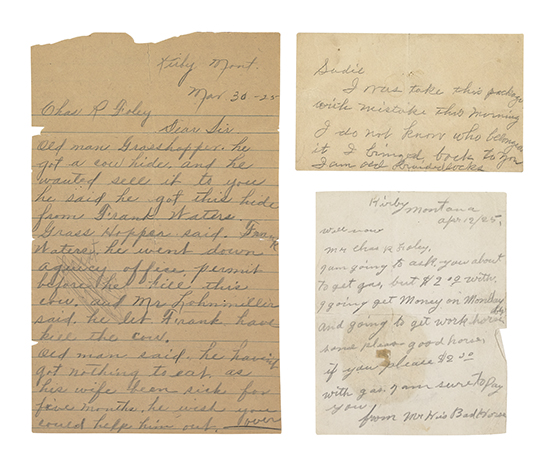 Kirby, Mont.
Mar 30 - 25
Chas R Foley
Dear Sir
Old man Grasshopper. he
got a cow hide, and he
wanted sell it to you
he said he got this hide
from Frank Waters.
Grass Hopper said. Frank
Waters, he went down
agency office, permit
before he kill this
cow. and Mr Lohmiller
said, he let Frank have
kill the cow.
Old man said, he having
got nothing to eat, as
his wife been sick for
five months, he wish you
could help him out. over
Sadie
I was take this package
with mistake this morning
I do not know who belongs
it, I bringed back to you
I am
Kirby Montana
apr 12/25,
well now
Mr Chas R Foley,
I am going to ask you about
to get gas, but $2 with,
I going get Money on Monday
and going to get work horse,
some place good horse,
if you please $2
with gas. I am sure to Pay
you
from Mr His Bad Horse